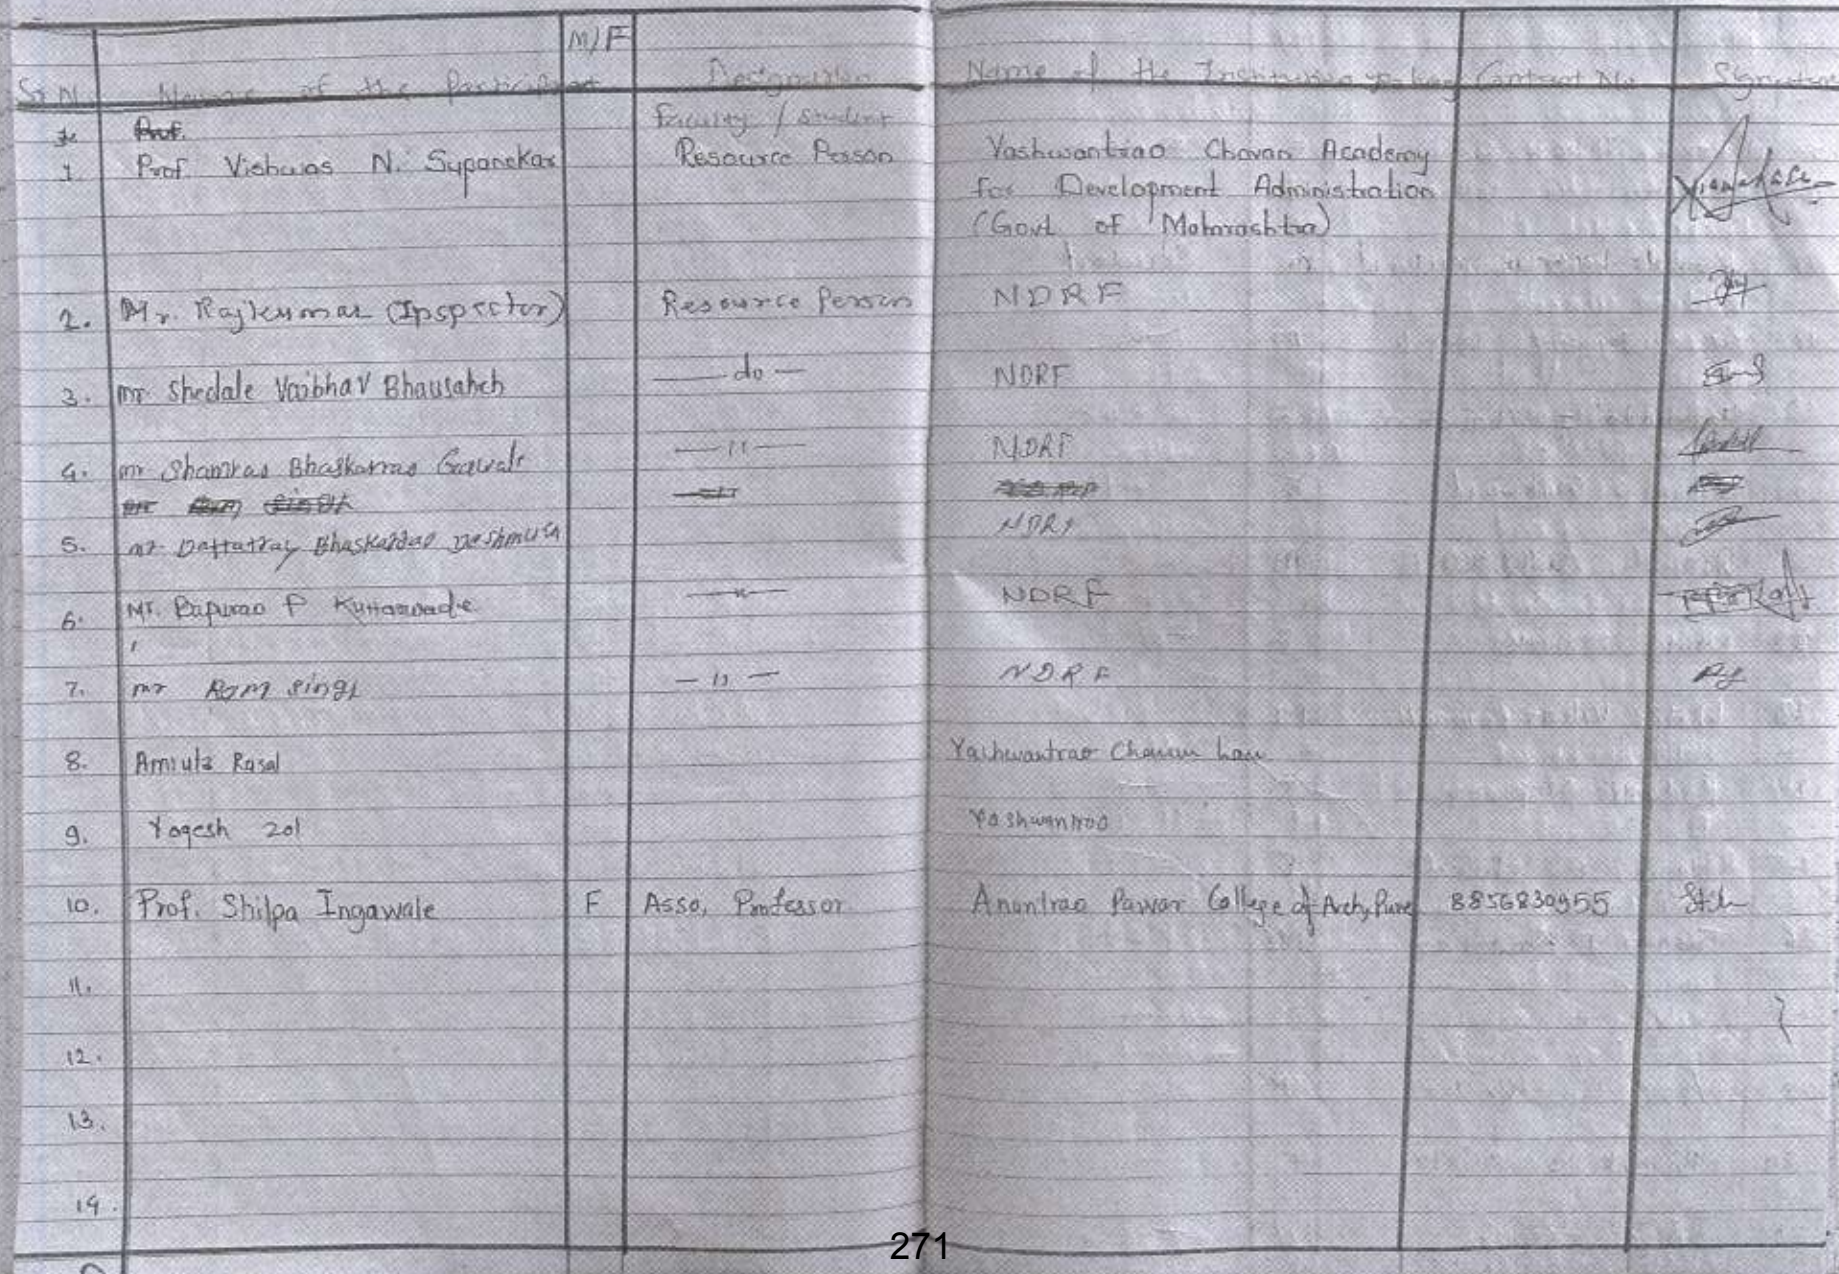 M/F
Sr N. Name of the Participant Designation Name of the Institution Contact No Signature
Faculty / Student
Prof.
1 Prof Vishwas N. Supanekar Resource Person Yashwantrao Chavan Academy
for Development Administration
(Govt of Maharashtra)
2. Mr. Rajkumar (Inspector) Resource Person NDRF
3. mr Shedale Vaibhav Bhausaheb — do — NDRF
4. mr Shamrao Bhaskarrao Gawali — 11 — NDRF
mr Ram Singh
5. mr Dattatray Bhaskarrao Deshmukh NDRF
6. Mr. Bapurao P — 11 — NDRF
7. mr Ram Singh — 11 — NDRF
8. Amruta Rasal Yashwantrao Chavan Law
9. Yogesh Zol Yashwantrao
10. Prof. Shilpa Ingawale F Asso, Professor Anantrao Pawar College of Arch, Pune 8856830955
11.
12.
13.
14.
271